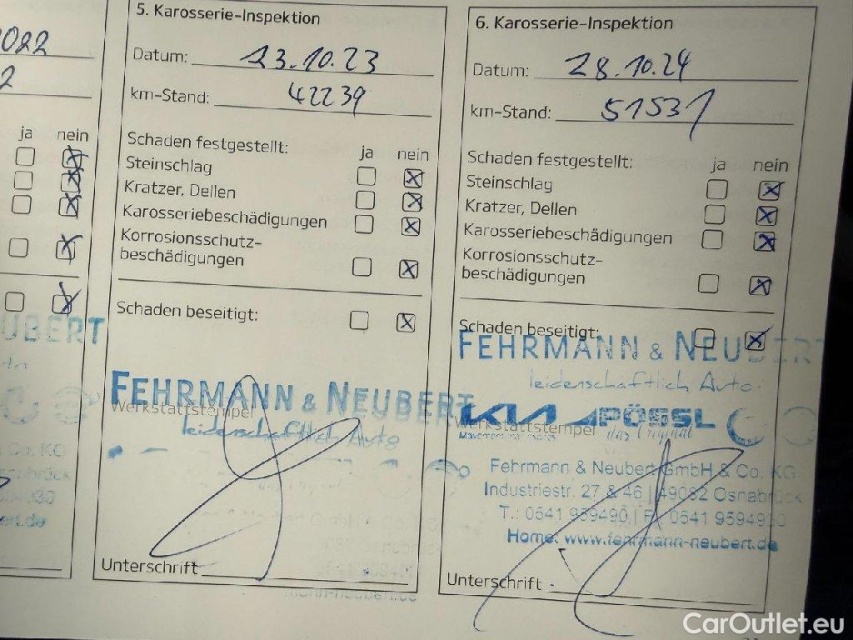 2022
2
ja nein
UBERT
5. Karosserie-Inspektion
Datum: 23.10.23
km-Stand: 42239
Schaden festgestellt: ja nein
Steinschlag
Kratzer, Dellen
Karosseriebeschädigungen
Korrosionsschutz-
beschädigungen
Schaden beseitigt:
FEHRMANN & NEUBERT
Werkstattstempel
leidenschaftlich Auto
Unterschrift
6. Karosserie-Inspektion
Datum: 28.10.24
km-Stand: 51531
Schaden festgestellt: ja nein
Steinschlag
Kratzer, Dellen
Karosseriebeschädigungen
Korrosionsschutz-
beschädigungen
Schaden beseitigt:
FEHRMANN & NEUBERT
leidenschaftlich Auto
KIA PÖSSL
Werkstattstempel das Original
Fehrmann & Neubert GmbH & Co. KG
Industriestr. 27 & 46 | 49082 Osnabrück
T.: 0541 959490 | F.: 0541 9594930
Home: www.fehrmann-neubert.de
Unterschrift
CarOutlet.eu